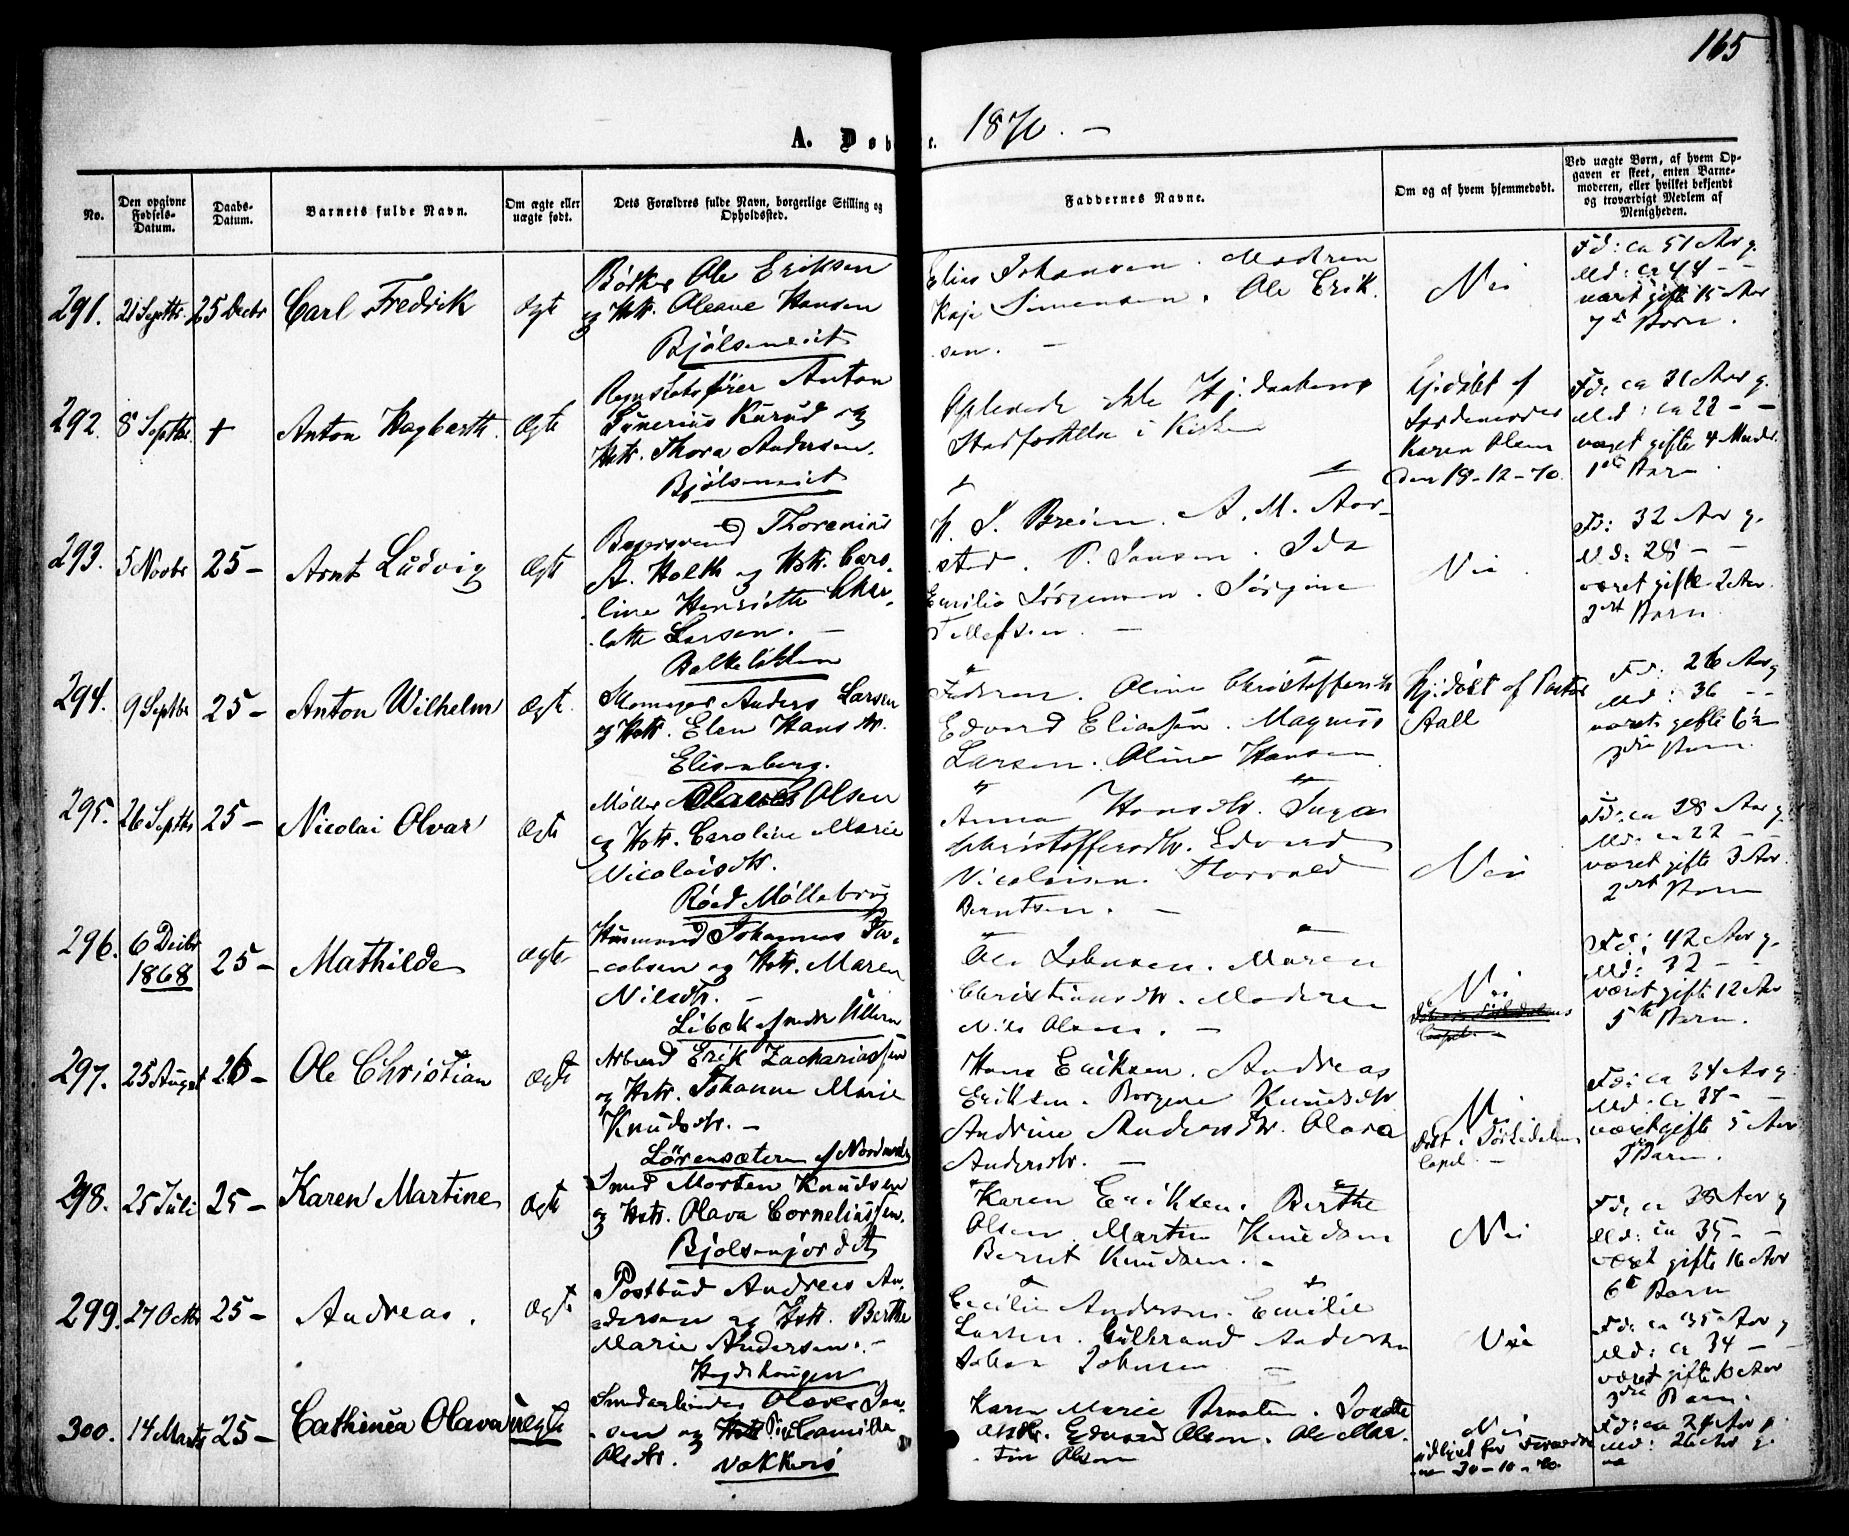 165
A. Døb e. 1870. —
No.
Den opgivne Fødsels-Datum.
Daabs-Datum.
Barnets fulde Navn.
Om ægte eller uægte født.
Dets Forældres fulde Navn, borgerlige Stilling og Opholdssted.
Faddernes Navne.
Om og af hvem hjemmedøbt.
Ved uægte Børn, af hvem Opgaven er skeet, enten Barnemoderen, eller hvilket bekjendt og troværdigt Medlem af Menigheden.
291. 21 Septbr. 25 Decbr Carl Fredrik Ægte
Bødker Ole Eriksen
og Hstr. Oleave Hansen
Bjølsenveit
Elias Johansen. Modren
Kaja Simensen. Ole Erik
sen. —
Nei
Fd: ca 51 Aar g.
Md: ca 44 — —
været gifte 15 Aar
7de Barn.
292. 8 Septbr. + Anton Hagbarth. Ægte
Anton
Kurud og
Hstr. Thora Andersen.
Bjølsenveit
Oplevede ikke Hj. daabens
Stadfæstelse i Kirken
Hj.døbt af
Jordemoder
Karen Olsen
den 19-12-70.
Fd: ca 21 Aar g.
Md: ca 22 — —
været gifte 4 Mndr.
1ste Barn.
293. 5 Novbr 25 — Arnt Ludvig Ægte
Thorenius
A. Holth og Hstr. Caro-
line Henriette Char-
lotte Larsen. —
Balkeløkken
A. M. Aar-
stad. P. Jansen. Ida
Emilie Jørgensen. Jørgine
Tellefsen. —
Nei
Fd: 32 Aar g.
Md: 28 — —
været gifte 2 Aar.
Barn
294. 9 Septbr 25 — Anton Wilhelm Ægte.
Skomager Anders Larsen
og Hstr. Elen Hansdtr.
Elisenberg.
Faderen. Oline Christoffersdtr
Edvard Eliassen. Magnus
Larsen. Oline Hansen
Hj.døbt af Pastor
Aall
Fd: 26 Aar g
Md: 36 — —
været gifte 6½
3die Barn.
295. 26 Septbr 25 — Nicolai Olvar Ægte
Møller Olaves Olsen
og Hstr. Caroline Marie
Nicolaisdtr.
Røed Møllebrug
Anna Hansdtr. Inga
Christoffersdtr. Edvard
Nicolaisen. Thorvald
Berntsen. —
Nei
Fd: ca 28 Aar g.
Md: ca 22 — —
været gifte 3 Aar.
Barn
296. 6 Decbr
1868 25 — Mathilde Ægte
Husmand Johannes Ja-
cobsen og Hstr. Maren
Nilsdtr. —
Libæk af nedre Ullern
Ole Johnsen. Maren
Christiansdtr. Moderen
Nils Olsen. —
Nei
Fd: 42 Aar g.
Md: 32 — —
været gifte 12 Aar
5te Barn.
297. 25 August 26 — Ole Christian Ægte
Arbmd Erik Zachariassen
og Hstr. Johanne Marie
Knudsdtr. —
Lørensæteren af Nordmarken
Hans Eriksen. Andreas
Eriksen. Borgine Knudsdtr
Andrine Andersdtr. Olava
Andersdtr. —
Nei
Døbt i Sørkedalens
Capel. —
Fd: ca 34 Aar g.
Md: ca 38 — —
været gifte 5 Aar
Barn.
298. 25 Juli 25 — Karen Martine Ægte
Smed Morten Knudsen
og Hstr. Olava Corneliussen.
Bjølsenjordet
Karen Eriksen. Berthe
Olsen. Martin Knudsen
Bernt Knudsen. —
Nei
Fd: ca 38 Aar g
Md: ca 35 — —
været gifte 16 Aar
6te Barn
299. 27 Octbr 25 — Andreas. Ægte
Postbud Andreas An-
dersen og Hstr. Berthe
Marie Andersen. —
Hegdehaugen
Cecilie Andersen. Emilie
Larsen. Gulbrand Andersen
Johan Johnsen —
Nei
Fd: ca 35 Aar g
Md: ca 34 — —
været gifte 10 Aar
3die Barn.
300. 14 Marts 25 — Cathinca Olava Uægte
Olaves Jan-
sen og Pige Camilla
Olsdtr. Vækkerø
Karen Marie Braaten.
Edvard Olsen. Ole Mar-
tin Olsen
Nei
30-10-70
Fd: ca 24 Aar
Md: 26 Aar g.